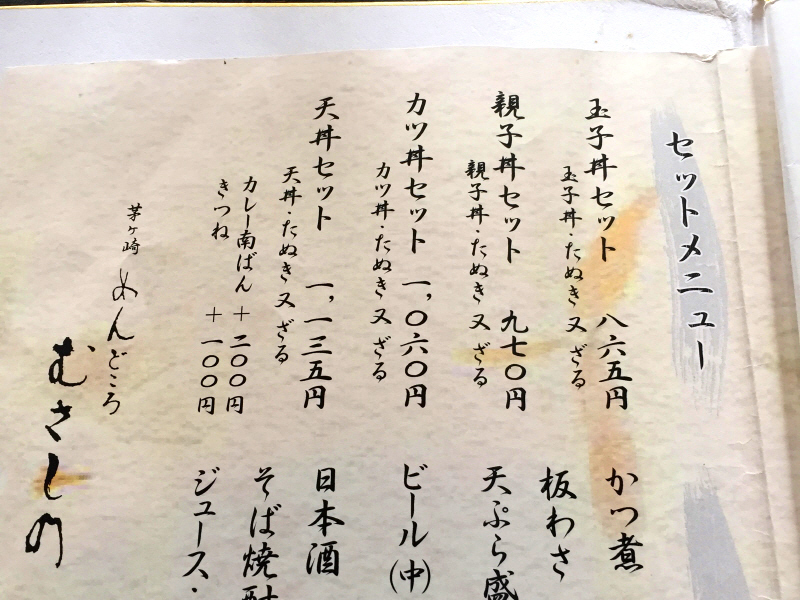 セットメニュー
玉子丼セット 八六五円
玉子丼・たぬき 又 ざる
親子丼セット 九七〇円
親子丼・たぬき 又 ざる
カツ丼セット 一,〇六〇円
カツ丼・たぬき 又 ざる
天丼セット 一,一三五円
天丼・たぬき 又 ざる
カレー南ばん +二〇〇円
きつね +一〇〇円
かつ煮
板わさ
天ぷら盛
ビール(中)
日本酒
そば焼酎
ジュース・
茅ヶ崎 めんどころ
むさしの